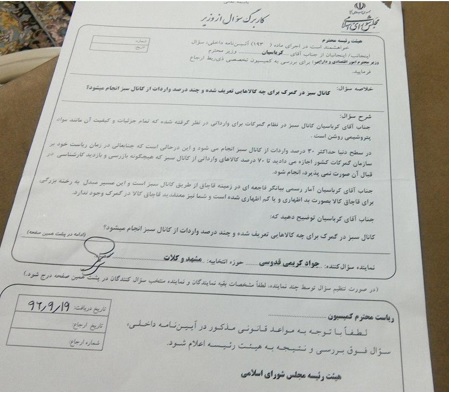 مجلس شورای اسلامی
کاربرگ سؤال از وزیر
هیئت رئیسه محترم
خواهشمند است در اجرای ماده (۱۹۳) آئین‌نامه داخلی، سؤال
اینجانب/ اینجانبان از جناب آقای ... کرباسیان ... وزیر محترم
وزیر محترم امور اقتصادی و دارایی/ برای بررسی به کمیسیون تخصصی ذی‌ربط ارجاع
فرمایید.
شماره:
تاریخ:
خلاصه سؤال: کانال سبز در گمرک برای چه کالاهایی تعریف شده و چند درصد واردات از کانال سبز انجام میشود؟
شرح سؤال:
جناب آقای کرباسیان کانال سبز در نظام گمرکات برای وارداتی در نظر گرفته شده که تمام جزئیات و کیفیت آن مانند مواد
پتروشیمی روشن است.
در سطح دنیا حداکثر ۳۰ درصد واردات از کانال سبز انجام می شود و این درحالی است که جنابعالی در زمان ریاست خود بر
سازمان گمرکات کشور اجازه می دادید تا ۷۰ درصد کالاهای وارداتی از کانال سبز که هیچگونه بازرسی و بازدید کارشناسی در
قبال آن صورت نمی پذیرد، انجام شود.
جناب آقای کرباسیان آمار رسمی بیانگر فاجعه ای در زمینه قاچاق از طریق کانال سبز است و این مسیر مبدل به رخنه بزرگی
برای قاچاق کالا بصورت بد اظهاری و یا کم اظهاری شده است و شما نیز معتقدید قاچاق کالا در گمرک وجود ندارد.
جناب آقای کرباسیان توضیح دهید که:
کانال سبز در گمرک برای چه کالاهایی تعریف شده و چند درصد واردات از کانال سبز انجام میشود؟
(ادامه در پشت همین صفحه)
نماینده سؤال‌کننده: جواد کریمی قدوسی حوزه انتخابیه: مشهد و کلات
(در صورت تنظیم سؤال توسط چند نماینده، لطفاً مشخصات بقیه نمایندگان و نماینده منتخب سؤال کنندگان در پشت همین صفحه درج شود.)
ریاست محترم کمیسیون
لطفاً با توجه به مواعد قانونی مذکور در آیین‌نامه داخلی،
سؤال فوق بررسی و نتیجه به هیئت رئیسه اعلام شود.
هیئت رئیسه مجلس شورای اسلامی
تاریخ دریافت: ۹۶/۹/۱۹
تاریخ ارجاع:
شماره ارجاع: